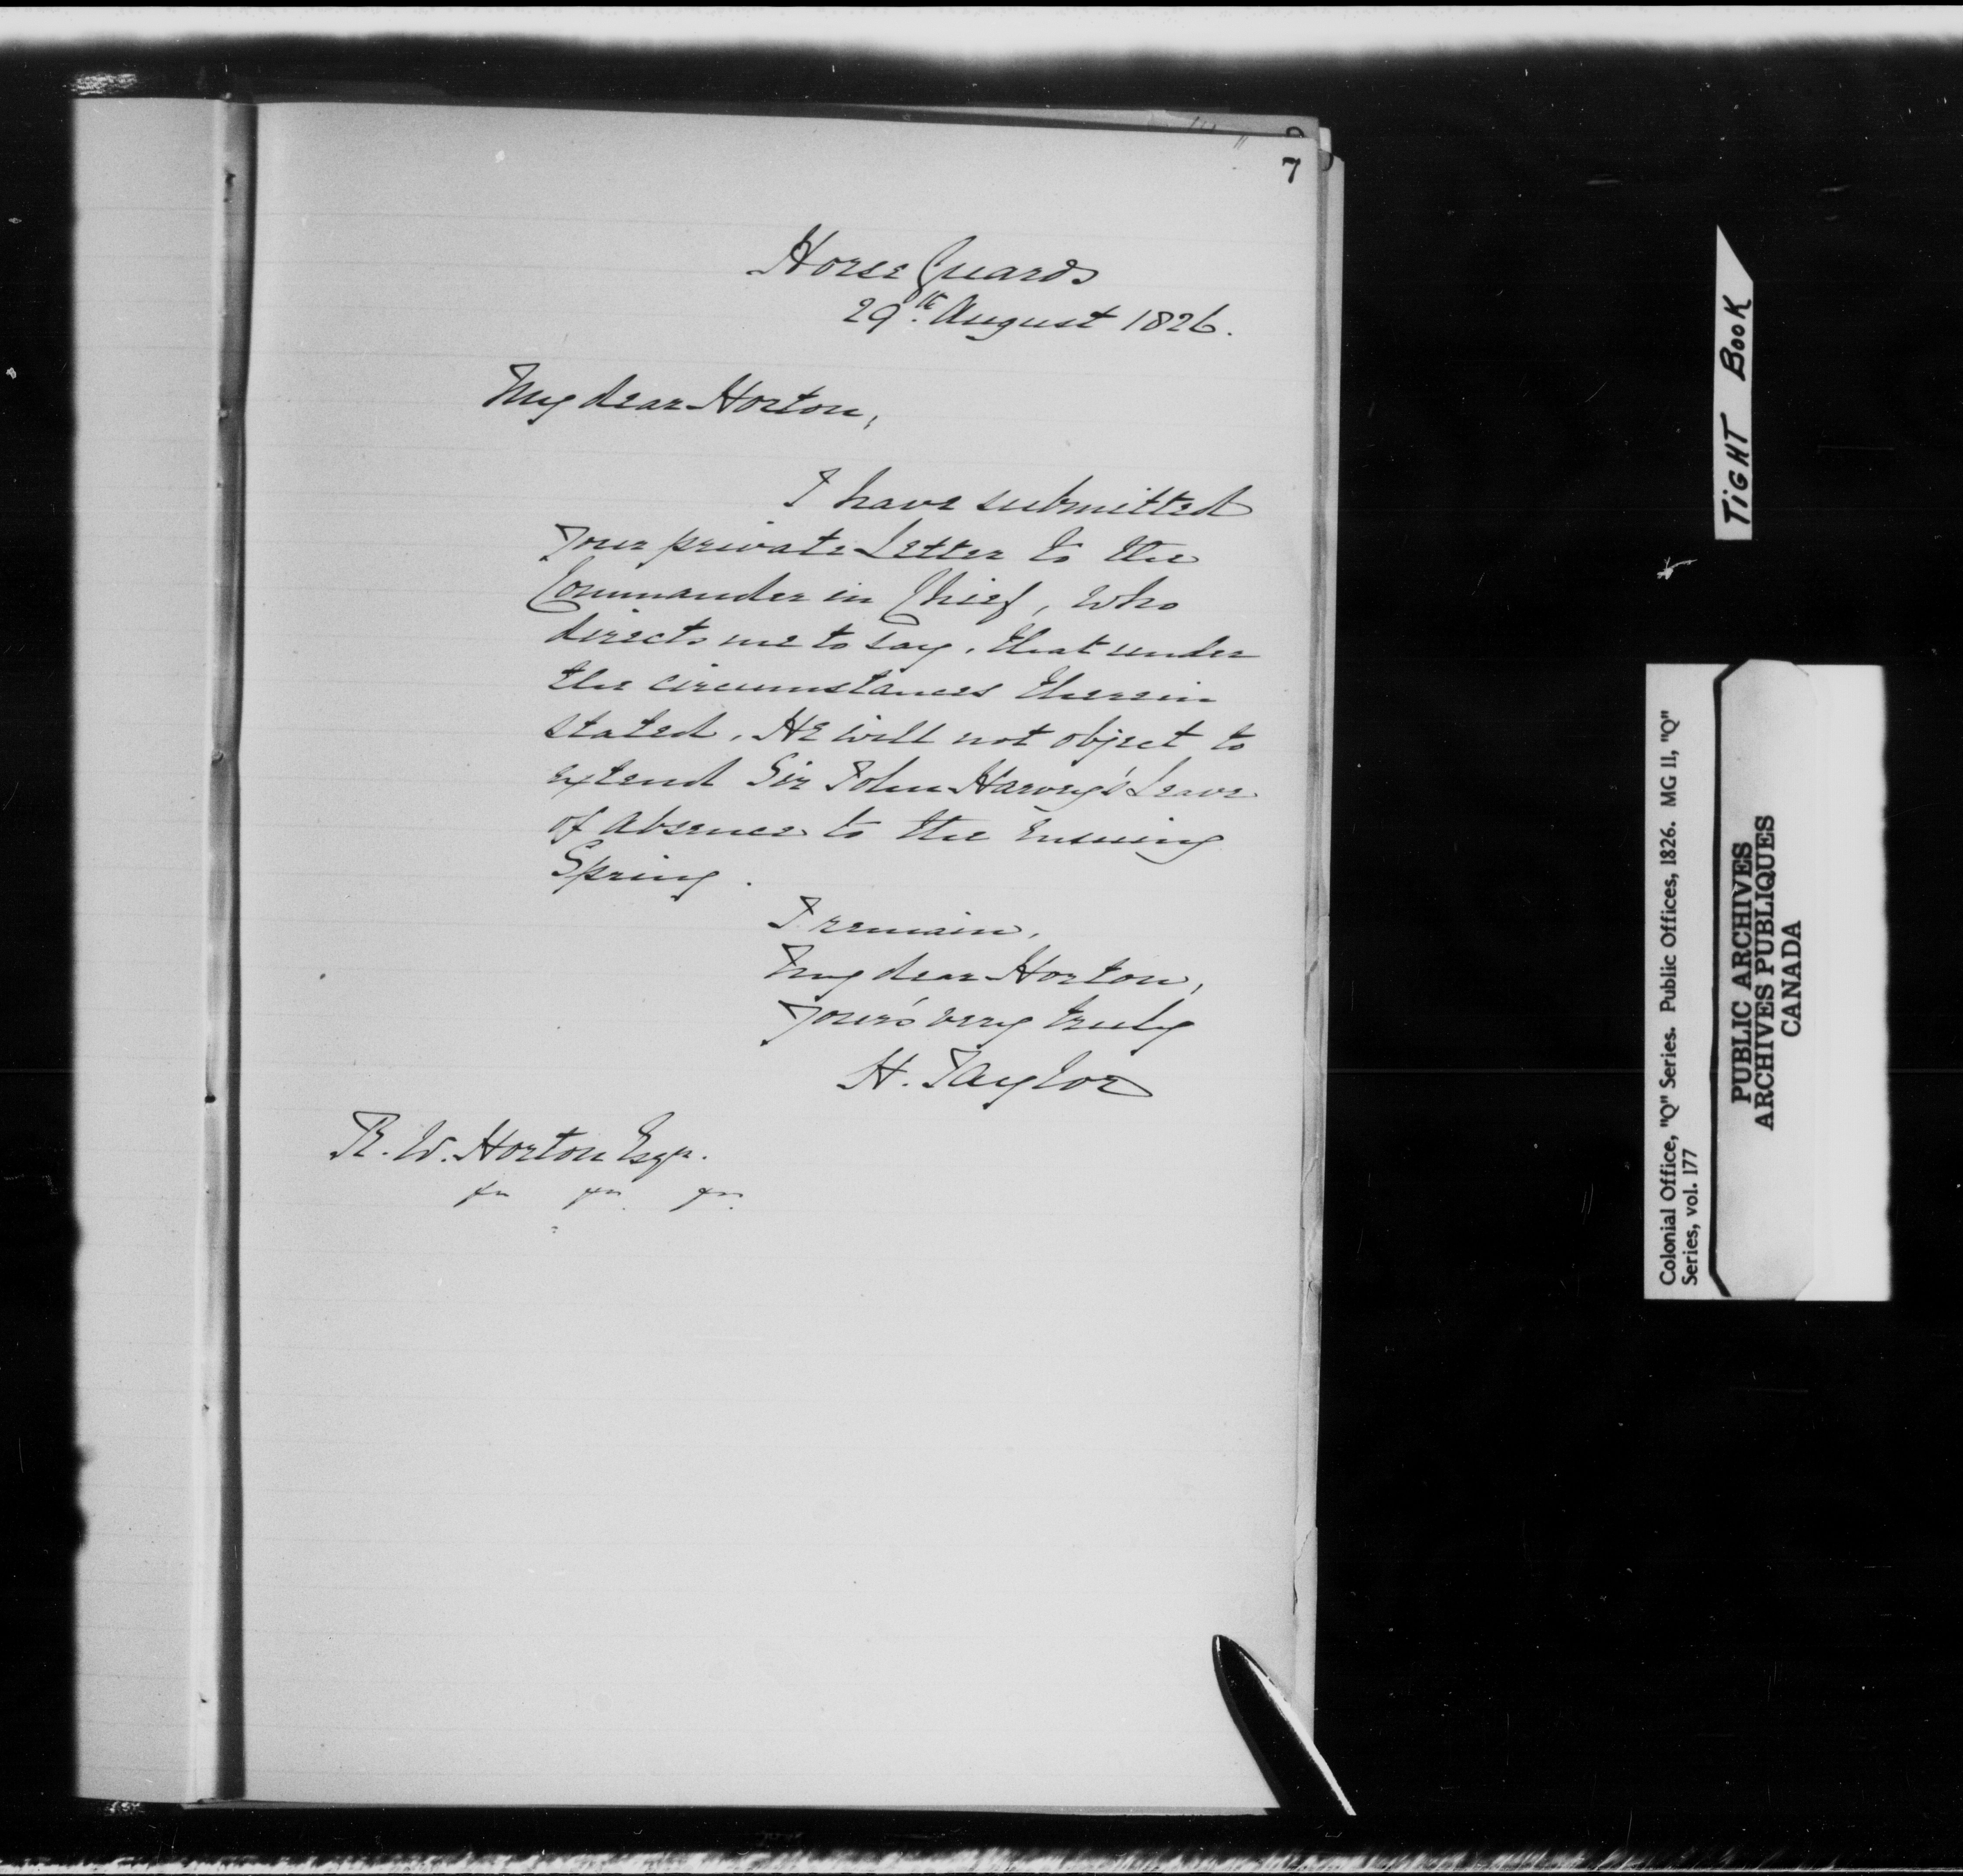 7
Horse Guards
29th August 1826.
My dear Horton,
I have submitted
your private Letter to the
Commander in Chief, who
directs me to say, that under
the circumstances therein
stated, He will not object to
extend Sir John Harvey's Leave
of Absence to the ensuing
Spring.
I remain,
My dear Horton,
Your's very truly
H. Taylor
R. W. Horton Esqr.
TIGHT BOOK
Colonial Office, "Q" Series. Public Offices, 1826. MG 11, "Q"
Series, vol. 177
PUBLIC ARCHIVES
ARCHIVES PUBLIQUES
CANADA